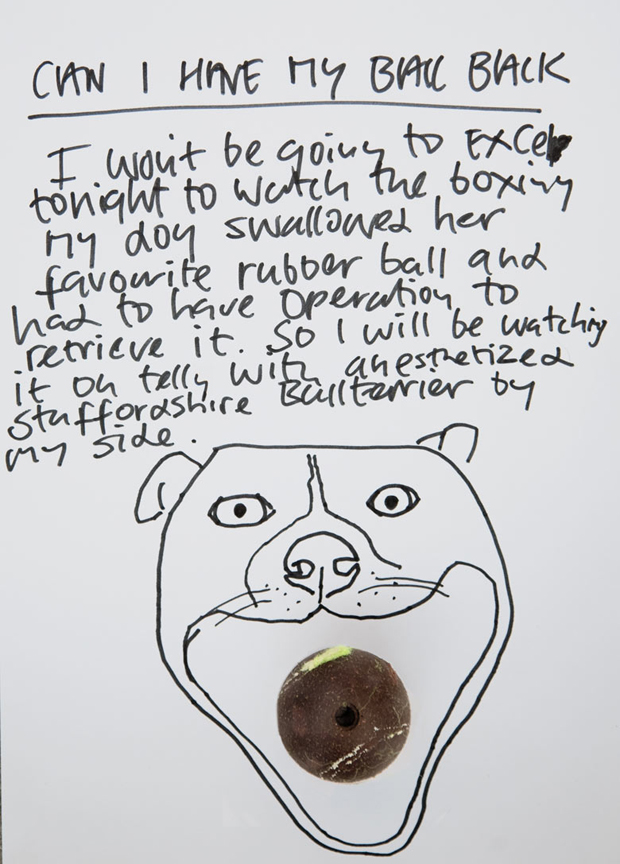 CAN I HAVE MY BALL BACK
I won't be going to EXCEL
tonight to watch the boxing
My dog swallowed her
favourite rubber ball and
had to have operation to
retrieve it. So I will be watching
it on telly with anesthetized
Staffordshire Bullterrier by
my side.